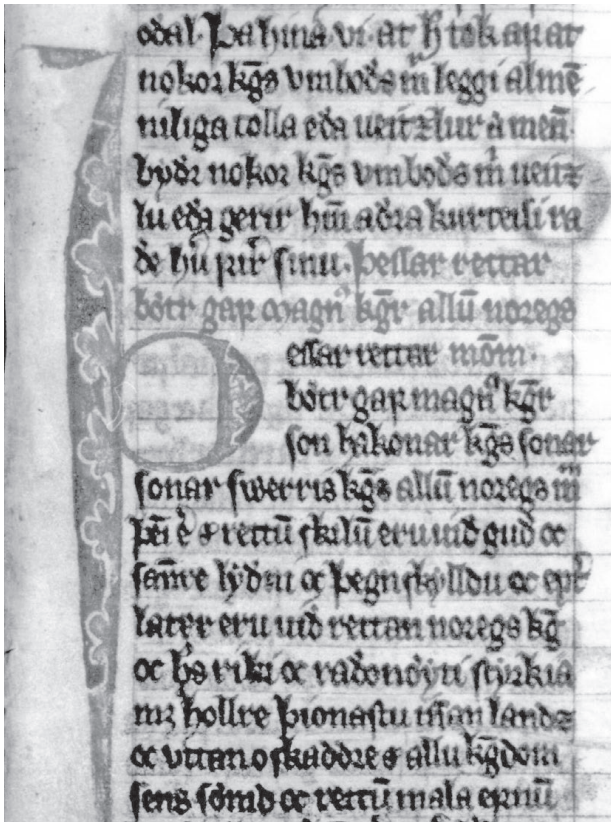 odal. Þa hina vi. at h̅ tok ap at
nokor kg̅s vmbods m̅ leggi alme̅
niliga tolla eða ueitzlur a men̅.
byðr nokor kg̅s vmbods m̅ ueitz
lu eða gerir hm̅ aðra kurteisi ra
de hu̅ firͬ sinu. þessar rettar
bötr gaf magnꝰ kg̅r allu̅ noregs
Þessar rettar mo̅m.
bötr gaf magnꝰ kg̅r
son hakonar kg̅s sonar
sonar swerris kg̅s allu̅ noregs m̅
þei̅ er rettu̅ skilu̅ eru uid gud oc
san̅re lydni oc þegnskylldu oc epͭ
later eru uid rettan noregs kg̅
oc h̅s riki oc radoneyti styrkia
mꝫ hollre þionastu i̅nan landz
oc vttan oskaddre allu kg̅dom
sens sömd oc rettu̅ mala efnu̅